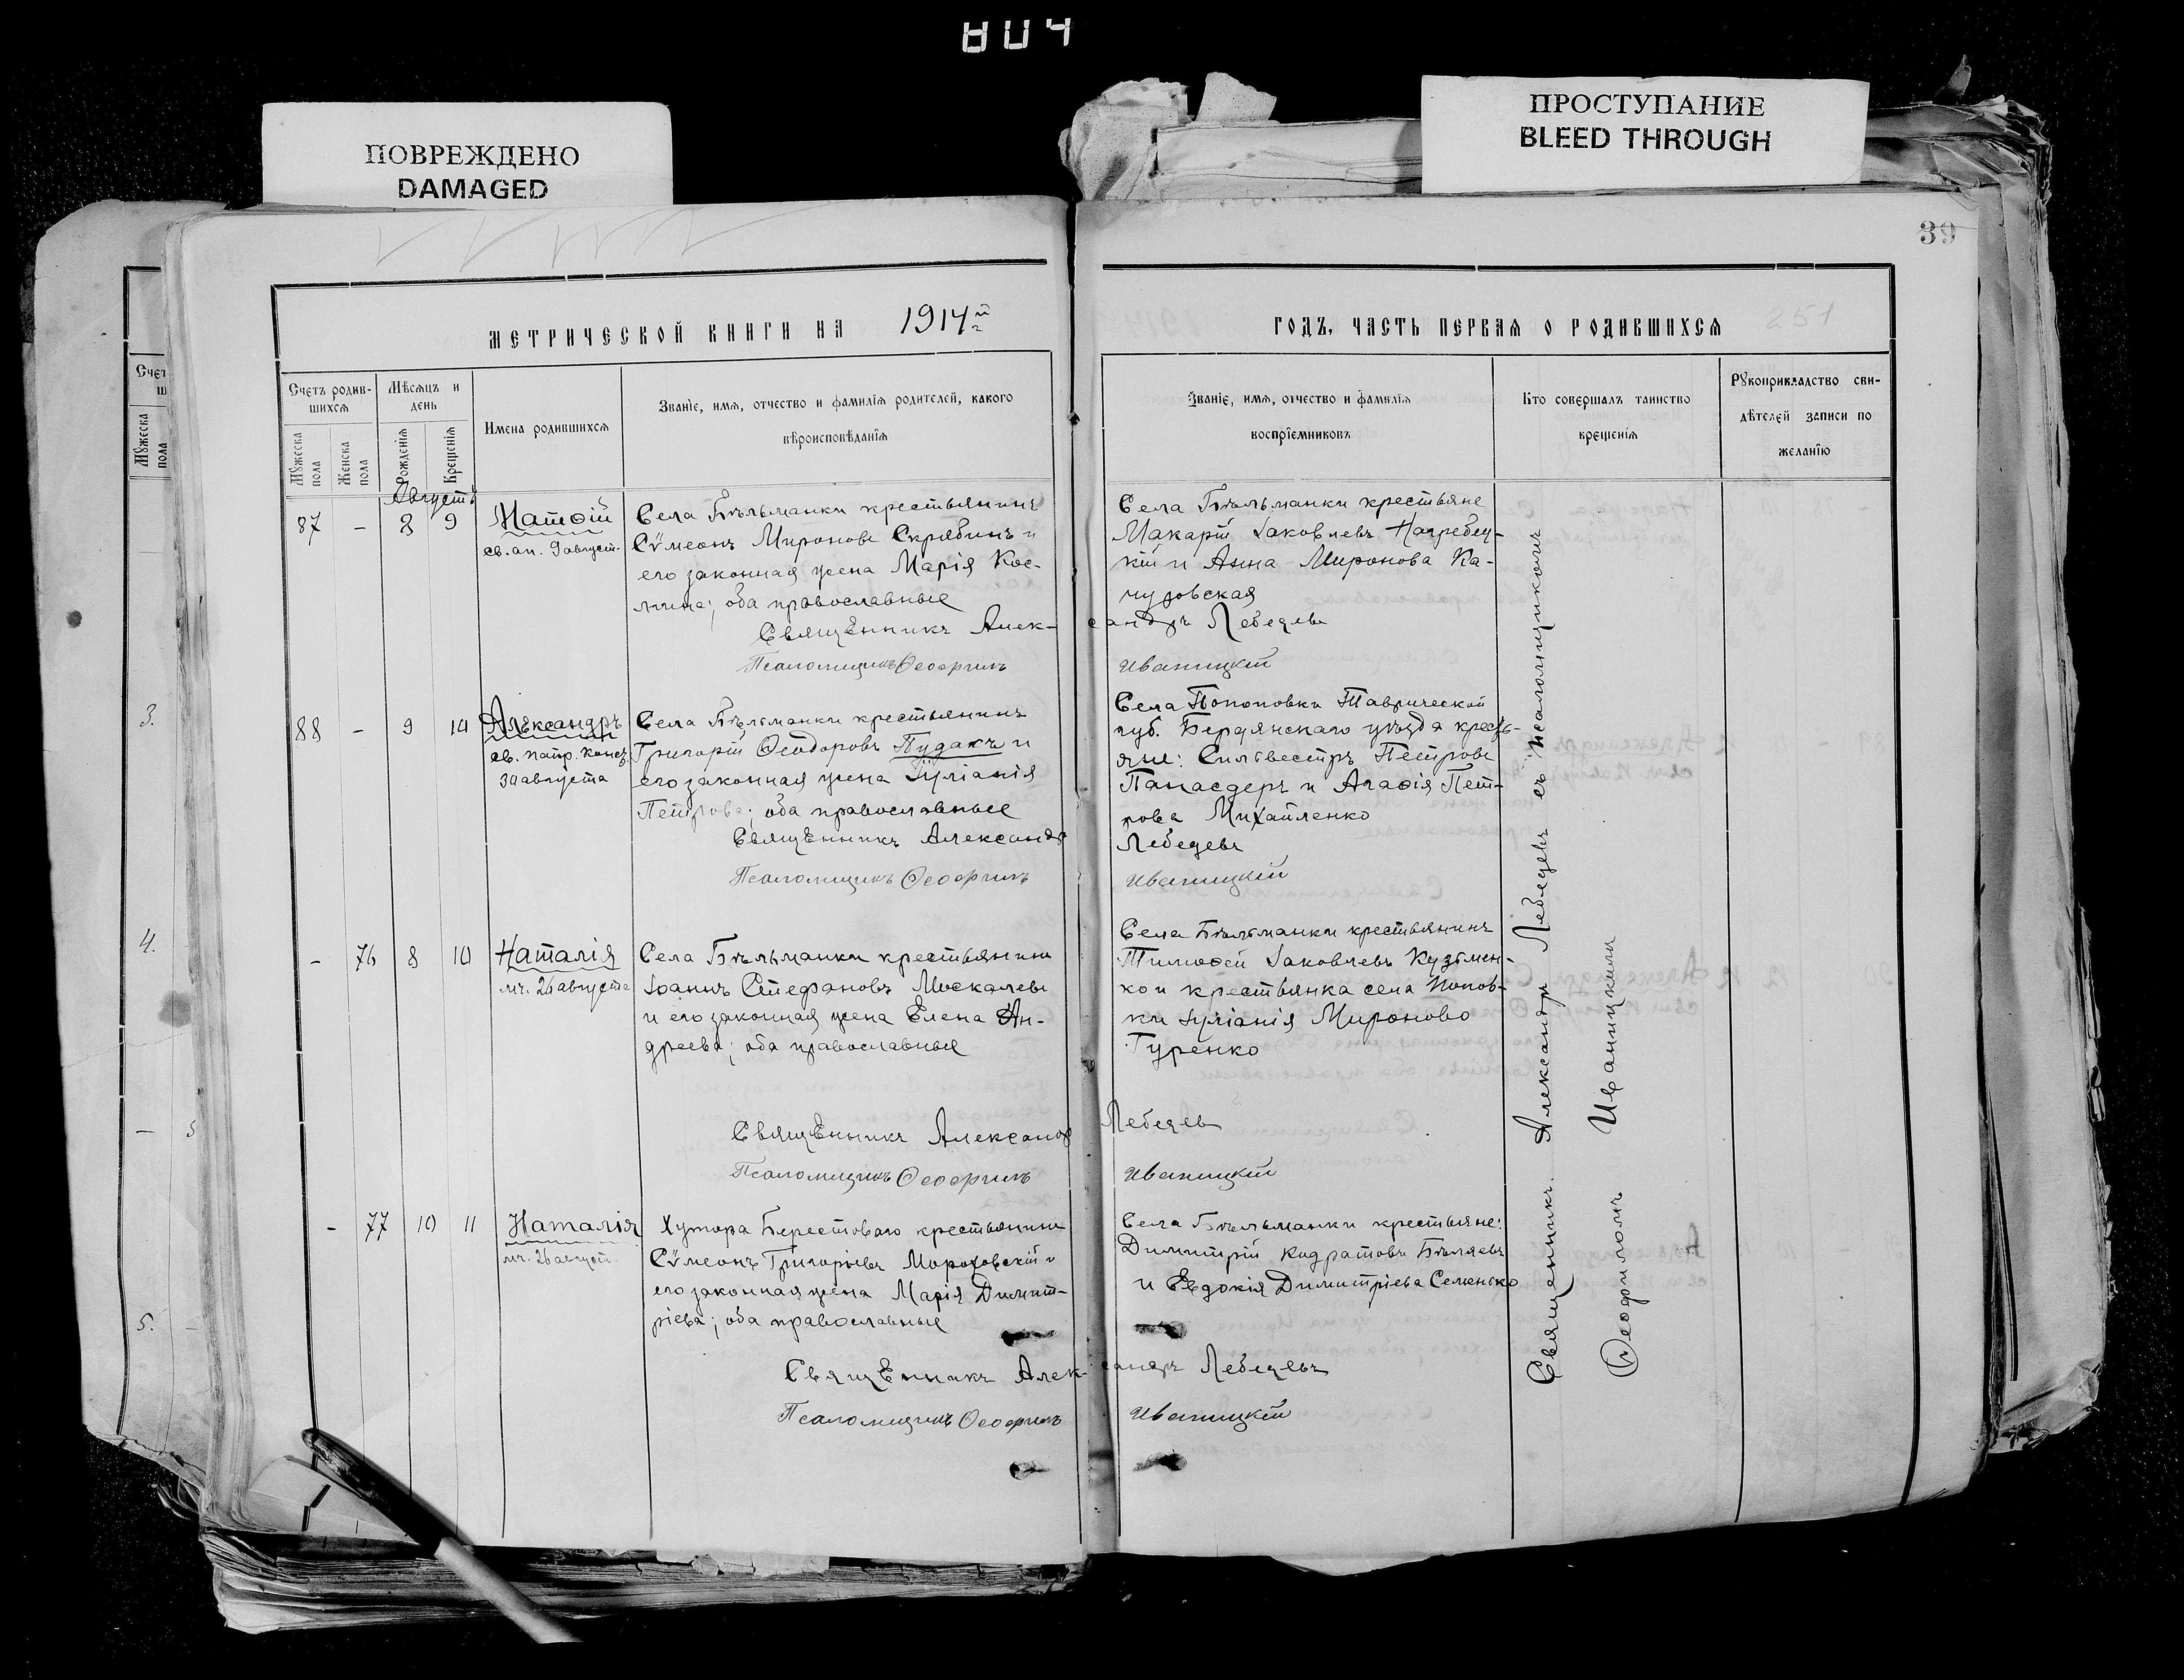 ПОВРЕЖДЕНО
DAMAGED
ПРОСТУПАНИЕ
BLEED THROUGH
39
МЕТРИЧЕСКОЙ КНИГИ НА 1914й г
ГОДЪ, ЧАСТЬ ПЕРВАЯ О РОДИВШИХСЯ 251
Счетъ родив-
шихся
Мужеска пола
Женска пола
Мѣсяцъ и
день
Рожденія
Крещенія
Имена родившихся
Званіе, имя, отчество и фамилія родителей, какого
вѣроисповѣданія
Званіе, имя, отчество и фамилія
воспріемниковъ
Кто совершалъ таинство
крещенія
Рукоприкладство сви-
дѣтелей записи по
желанію
Августъ
87 - 8 9
Матѳій
св. ап. 9 август.
Села Бѣльманки крестьянинъ
Сѵмеонъ Мироновъ Скрябинъ и
его законная жена Марія Кос-
мина; оба православные
Священникъ Алек-
сандръ Лебедевъ
Псаломщикъ Ѳеофилъ
Иваницкій
Села Бѣльманки крестьяне
Макарій Іаковлевъ Нагребец-
кій и Анна Миронова Ка-
чуровская
88 - 9 10
Александръ
св. патр. Конст.
30 августа
Села Бѣльманки крестьянинъ
Григорій Ѳеодоровъ Пудакъ и
его законная жена Іуліанія
Петрова; оба православные
Священникъ Александръ
Лебедевъ
Псаломщикъ Ѳеофилъ
Иваницкій
Села Поповки Таврической
губ. Бердянскаго уѣзда кресть-
яне: Сильвестръ Петровъ
Панасдеръ и Агаѳія Пет-
рова Михайленко
- 76 8 10
Наталія
мч. 26 августа
Села Бѣльманки крестьянинъ
Іоаннъ Стефановъ Москалевъ
и его законная жена Елена Ан-
дреева; оба православные
Священникъ Александръ
Лебедевъ
Псаломщикъ Ѳеофилъ
Иваницкій
Села Бѣльманки крестьянинъ
Тимоѳей Іаковлевъ Кузьмен-
ко и крестьянка села Попов-
ки Іуліанія Миронова
Гуренко
- 77 10 11
Наталія
мч. 26 август.
Хутора Берестоваго крестьянинъ
Сѵмеонъ Григорьевъ Мороховскій и
его законная жена Марія Димит-
ріева; оба православные
Священникъ Алек-
сандръ Лебедевъ
Псаломщикъ Ѳеофилъ
Иваницкій
Села Бѣльманки крестьяне:
Димитрій Кодратовъ Бѣляевъ
и Евдокія Димитріева Семенько
Священникъ Александръ Лебедевъ съ псаломщикомъ
Ѳеофиломъ Иваницкимъ
3.
4.
5.